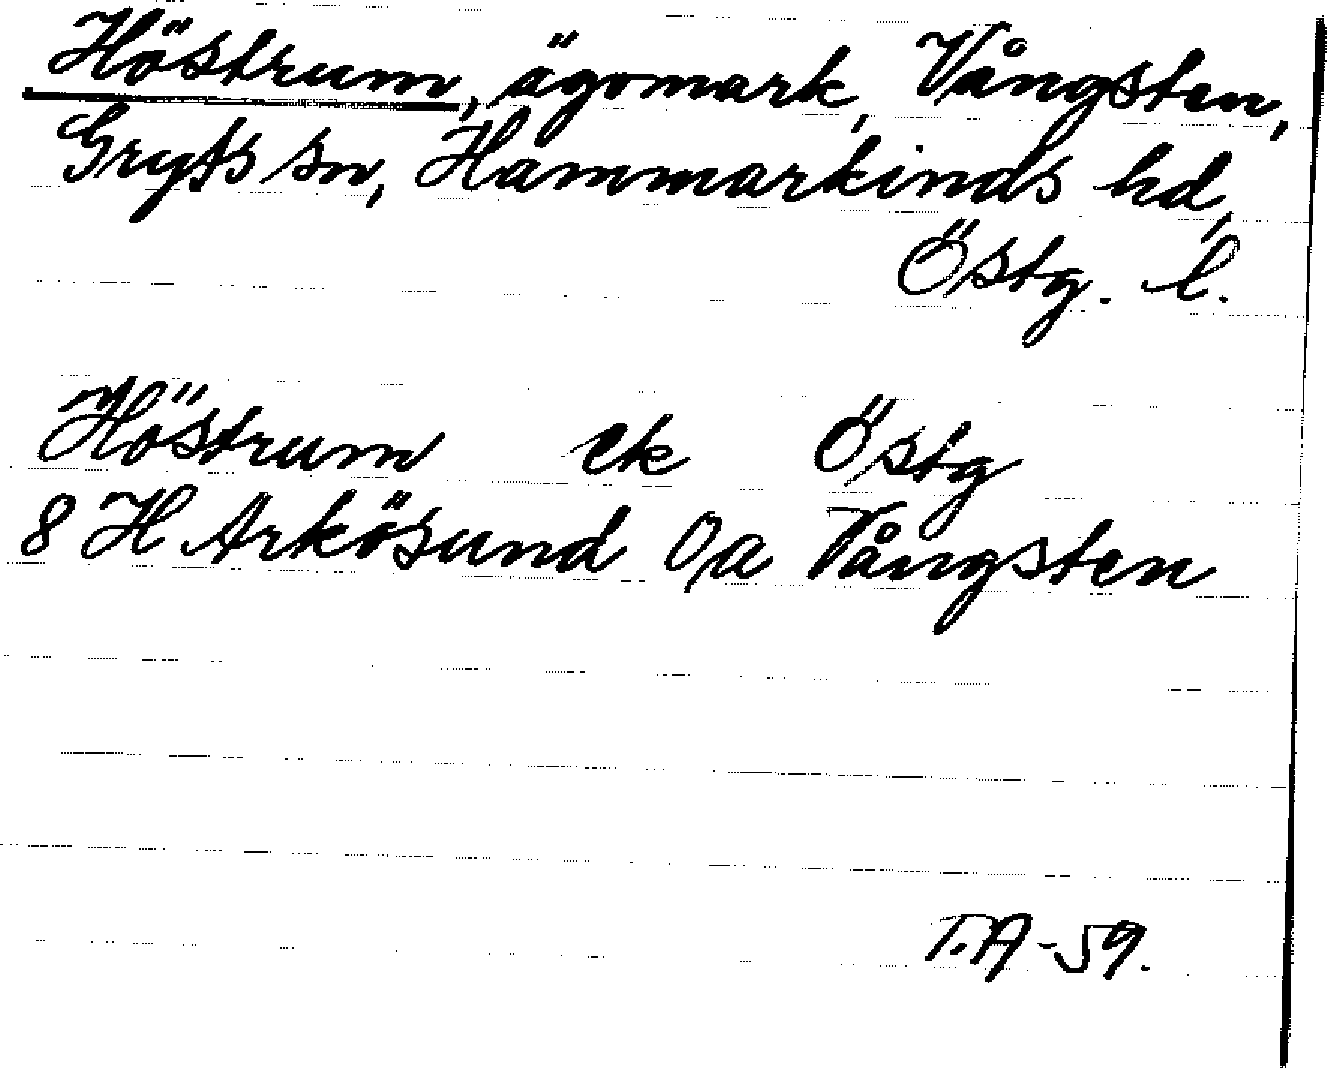 Höstrum, ägomark, Vångsten,
Gryts sn, Hammarkinds hd,
Östg. l.
Höstrum ek Östg
8 H Arkösund Oa Vångsten
T.A -59.